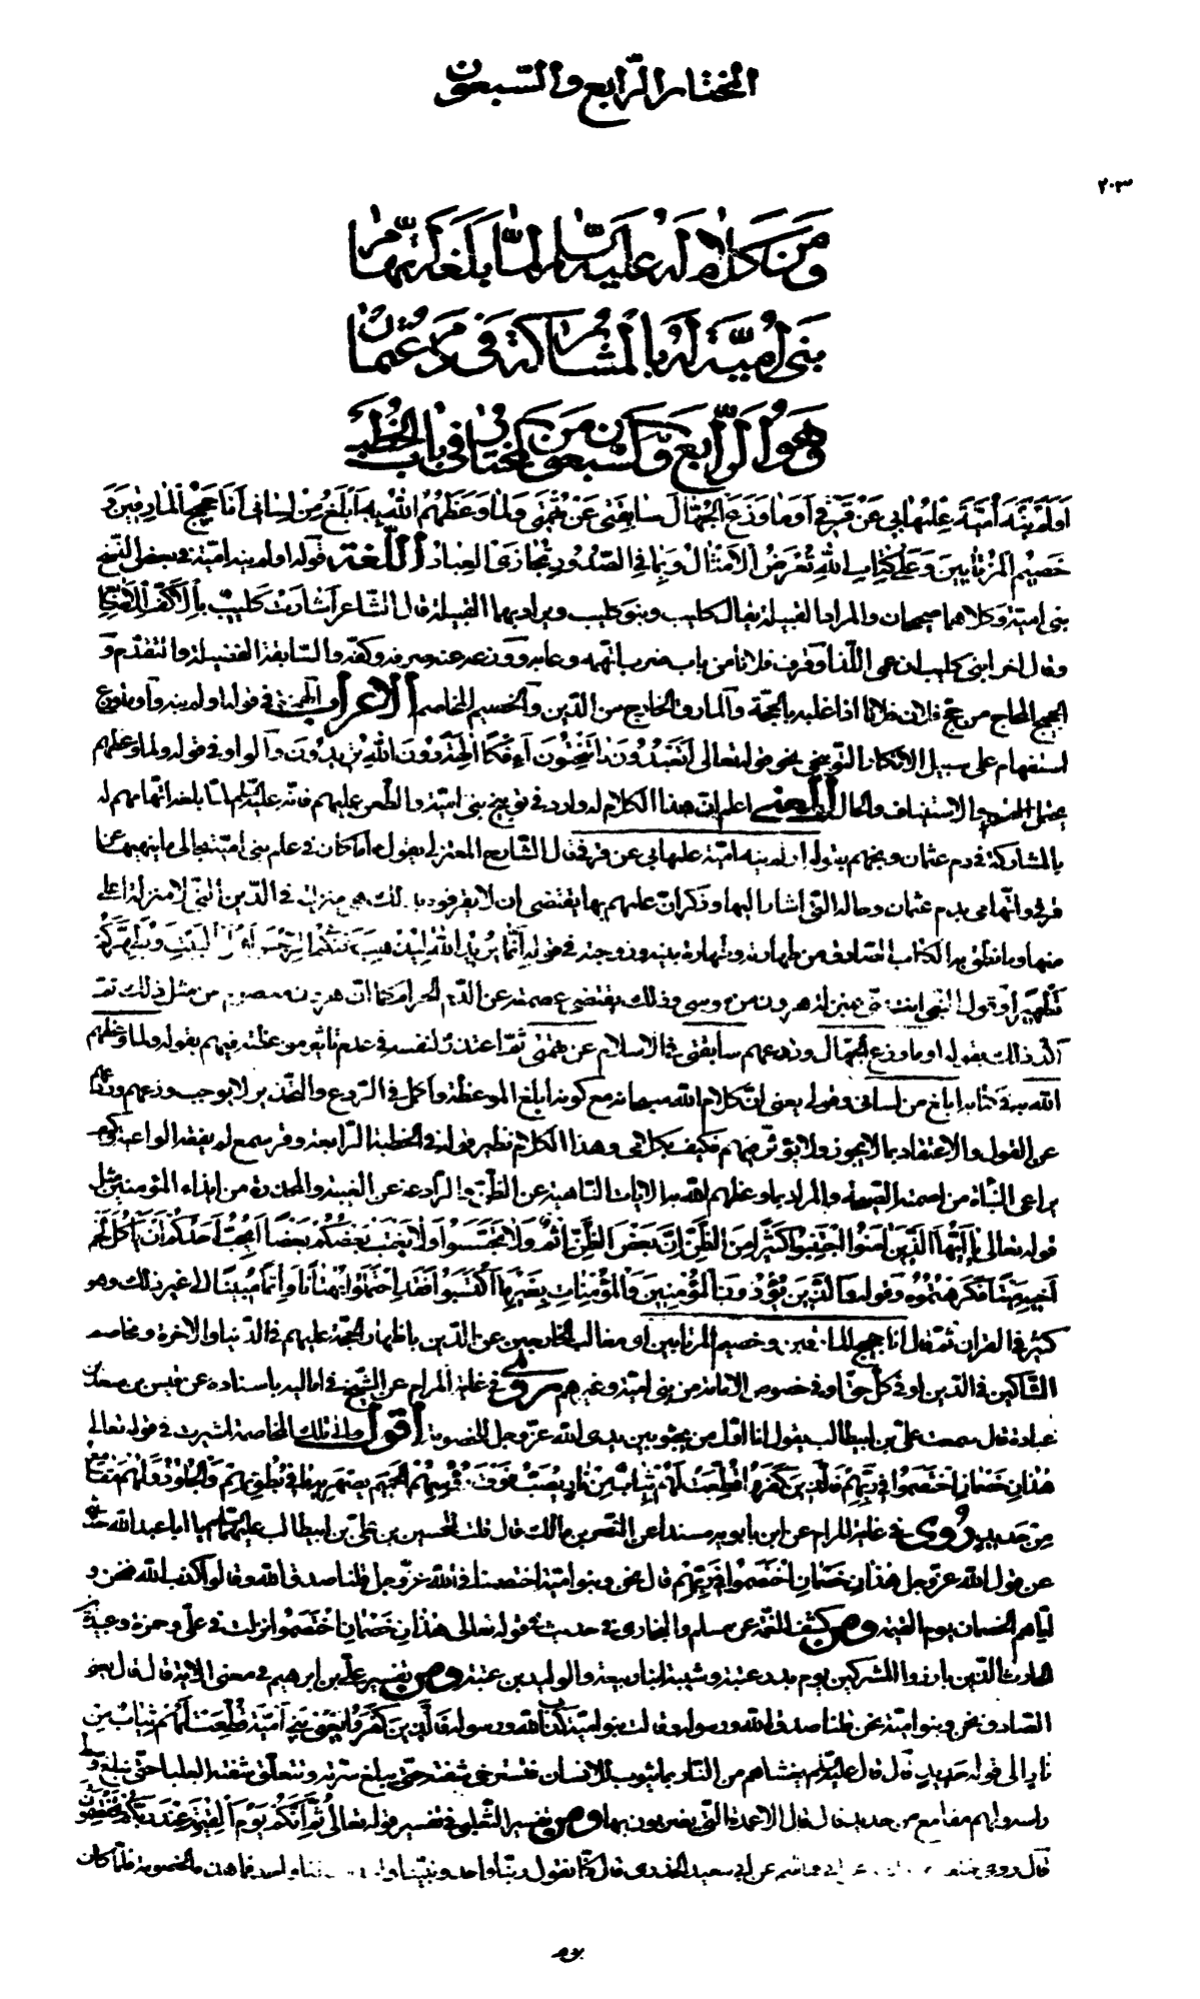 المختار الرّابع والسّبعون
٢٠٣
ومن كلام له عليه السّلام لمّا بلغه اتّهام
بنى اميّة له بالمشاركة فى دم عثمان
وهو الرّابع والسّبعون من المختار فى باب الخطب
اَوَلَمْ يَنْهَ اُمَيَّةَ عِلْمُها بي عَنْ قَرَفي اَوَما وَزَعَ الجُهّالَ سابِقَتي عَنْ تُهْمَتي وَلَما وَعَظَهُمُ اللهُ بِهِ اَبْلَغُ مِنْ لِساني اَنَا حَجيجُ المارِقينَ وَ
خَصيمُ المُرْتابينَ وَعَلى كِتابِ اللهِ تُعْرَضُ الاَمْثالُ وَبِما فِي الصُّدُورِ تُجازَى العِبادُ اللّغة قوله اولم ينه اميّة فى بعض النّسخ
بنى اميّة وكلاهما صحيحان والمراد القبيلة يقال كليب وبنو كليب ويراد بهما القبيلة قال الشّاعر اشارت كليب بالاكفّ الاصابع
وقال اخر ابنى كليب ان عمى اللّذا وقرف فلانا من باب ضرب اتّهمه وعابه ووزعه عنه صرفه وكفّه والسّابقة الفضيلة والتقدّم و
الحجيج المحاجّ من حجّ فلان فلانا اذا غلبه بالحجّة والمارق الخارج من الدّين والخصيم المخاصم الاعراب الهمزة فى قوله اولم ينه و اوما وزع
استفهام على سبيل الانكار التّوبيخى نحو قوله تعالى اَتَعْبُدُونَ ما تَنْحِتُونَ اَءِفْكاً الِهَةً دُونَ اللهِ تُريدُونَ والواو فى قوله ولما وعظهم
يحتمل القسم والاستيناف والحال المعنى اعلم انّ هذا الكلام له وارد فى توبيخ بنى اميّة والطّعن عليهم فانّه عليه السّلم لمّا بلغه اتّهامهم له
بالمشاركة فى دم عثمان وبّخهم بقوله اولم ينه اميّة علمها بي عن قرفى قال الشّارح المعتزلى يقول اما كان فى علم بنى اميّة بحالى ما ينهيها عن
قرفى واتّهامى بدم عثمان وحاله الّتى اشار اليها وذكر انّ علمهم بها يقتضى ان لا يقرفوه بذلك هى منزلته فى الدّين الّتى لا منزلة اعلى
منها وما نطق به الكتاب الصّادق من طهارته وطهارة بنيه وزوجته فى قوله اِنَّما يُريدُ اللهُ لِيُذْهِبَ عَنْكُمُ الرِّجْسَ اَهْلَ الْبَيْتِ وَيُطَهِّرَكُمْ
تَطْهيراً وقول النّبى انت منّى بمنزلة هرون من موسى وذلك يقتضى عصمته عن الدّم الحرام كما انّ هرون معصوم من مثل ذلك ثمّ
اكّد ذلك بقوله اوما وزع الجهّال وردعهم سابقتى فى الاسلام عن تهمتى ثمّ اعتذر لنفسه فى عدم تاثير موعظته فيهم بقوله ولما وعظهم
الله به فى كتابه ابلغ من لسانى وقولى يعنى انّ كلام الله سبحانه مع كونه ابلغ الموعظة واكمل فى الرّدع والتّحذير لا يوجب وزعهم
عن القول والاعتقاد بما لا يجوز ولا يؤثّر فيهم فكيف بكلامى وهذا الكلام نظير قوله فى الخطبة الرّابعة وقر سمع لم يفقه الواعية وكيف
يراعى النّباة من اصمته الصّيحة والمراد بما وعظهم الله به الايات النّاهية عن الظّنّ والرّادعة عن الغيبة والمحذّرة من ايذاء المؤمنين مثل
قوله تعالى يا اَيُّهَا الَّذينَ امَنُوا اجْتَنِبُوا كَثيراً مِنَ الظَّنِّ اِنَّ بَعْضَ الظَّنِّ اِثْمٌ وَلا تَجَسَّسُوا وَلا يَغْتَبْ بَعْضُكُمْ بَعْضاً اَيُحِبُّ اَحَدُكُمْ اَنْ يَاْكُلَ لَحْمَ
اَخيهِ مَيْتاً فَكَرِهْتُمُوهُ وقوله وَالَّذينَ يُؤْذُونَ الْمُؤْمِنينَ وَالْمُؤْمِناتِ بِغَيْرِ مَا اكْتَسَبُوا فَقَدِ احْتَمَلُوا بُهْتاناً وَاِثْماً مُبيناً الى غير ذلك وهو
كثير فى القران ثمّ قال انا حجيج المارقين وخصيم المرتابين اى مغالب الخارجين عن الدّين باظهار الحجّة عليهم فى الدّنيا والاخرة ومخاصم
الشّاكين فى الدّين او فى كلّ حقّ او فى خصوص الامامة من بنى اميّة وغيرهم روى فى غاية المرام عن الشّيخ فى اماليه باسناده عن قيس بن سعد بن
عبادة قال سمعت علىّ بن ابيطالب يقول انا اوّل من يجثو بين يدى الله عزّ وجل للخصومة اقول والى تلك المخاصمة اشيرت فى قوله تعالى
هذانِ خَصْمانِ اخْتَصَمُوا في رَبِّهِمْ فَالَّذينَ كَفَرُوا قُطِّعَتْ لَهُمْ ثِيابٌ مِنْ نارٍ يُصَبُّ مِنْ فَوْقِ رُؤُسِهِمُ الْحَميمُ يُصْهَرُ بِهِ ما في بُطُونِهِمْ وَالْجُلُودُ وَلَهُمْ مَقامِعُ
مِنْ حَديدٍ روى فى غاية المرام عن ابن بابويه مسندا عن النّضر بن مالك قال قلت للحسين بن علىّ بن ابيطالب عليهم السّلم يا ابا عبد الله حدّثنى
عن قول الله عزّ وجل هذانِ خَصْمانِ اخْتَصَمُوا في رَبِّهِمْ قال نحن وبنو اميّة اختصمنا فى الله عزّ وجل قلنا صدق الله وقالوا كذب الله فنحن و
ايّاهم الخصمان يوم القيمة ومن كشف الغمّة عن مسلم والبخارى فى حديث فى قوله تعالى هذانِ خَصْمانِ اخْتَصَمُوا نزلت فى علىّ وحمزة وعبيدة بن
الحارث الّذين بارزوا المشركين يوم بدر عتبة وشيبة ابنا ربيعة والوليد بن عتبة ومن تفسير علىّ بن ابرهيم فى معنى الاية قال قال نعو
الصّادق نحن وبنو اميّة نحن قلنا صدق الله ورسوله وقالت بنو اميّة كذب الله ورسوله فَالَّذينَ كَفَرُوا يعنى بنى اميّة قُطِّعَتْ لَهُمْ ثِيابٌ مِنْ
نارٍ الى قوله حَديدٍ قال قال عليه السّلم يغشاهم من النّار كالثوب للانسان فتسترخى شفته حتّى يبلغ سرّته وتتعلّق شفته العليا حتّى تبلغ وسط
راسه ولهم مقامع من حديد قال قال الاعمدة الّتى يضربون بها ومن تفسير الثّعلبى فى تفسير قوله تعالى ثُمَّ اِنَّكُمْ يَوْمَ الْقِيمَةِ عِنْدَ رَبِّكُمْ تَخْتَصِمُونَ
قال روى عن ابى سعيد الخدرى قال كنّا نقول ربّنا واحد ونبيّنا واحد فما هذه الخصومة فلمّا كان
يوم